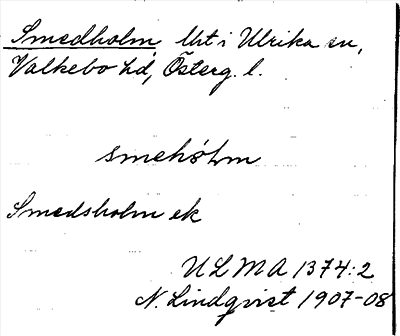 Smedholm, lht i Ulrika sn,
Valkebo hd, Österg. l.
smehólm
Smedsholm ek
ULMA 1374:2
N. Lindqvist 1907-08